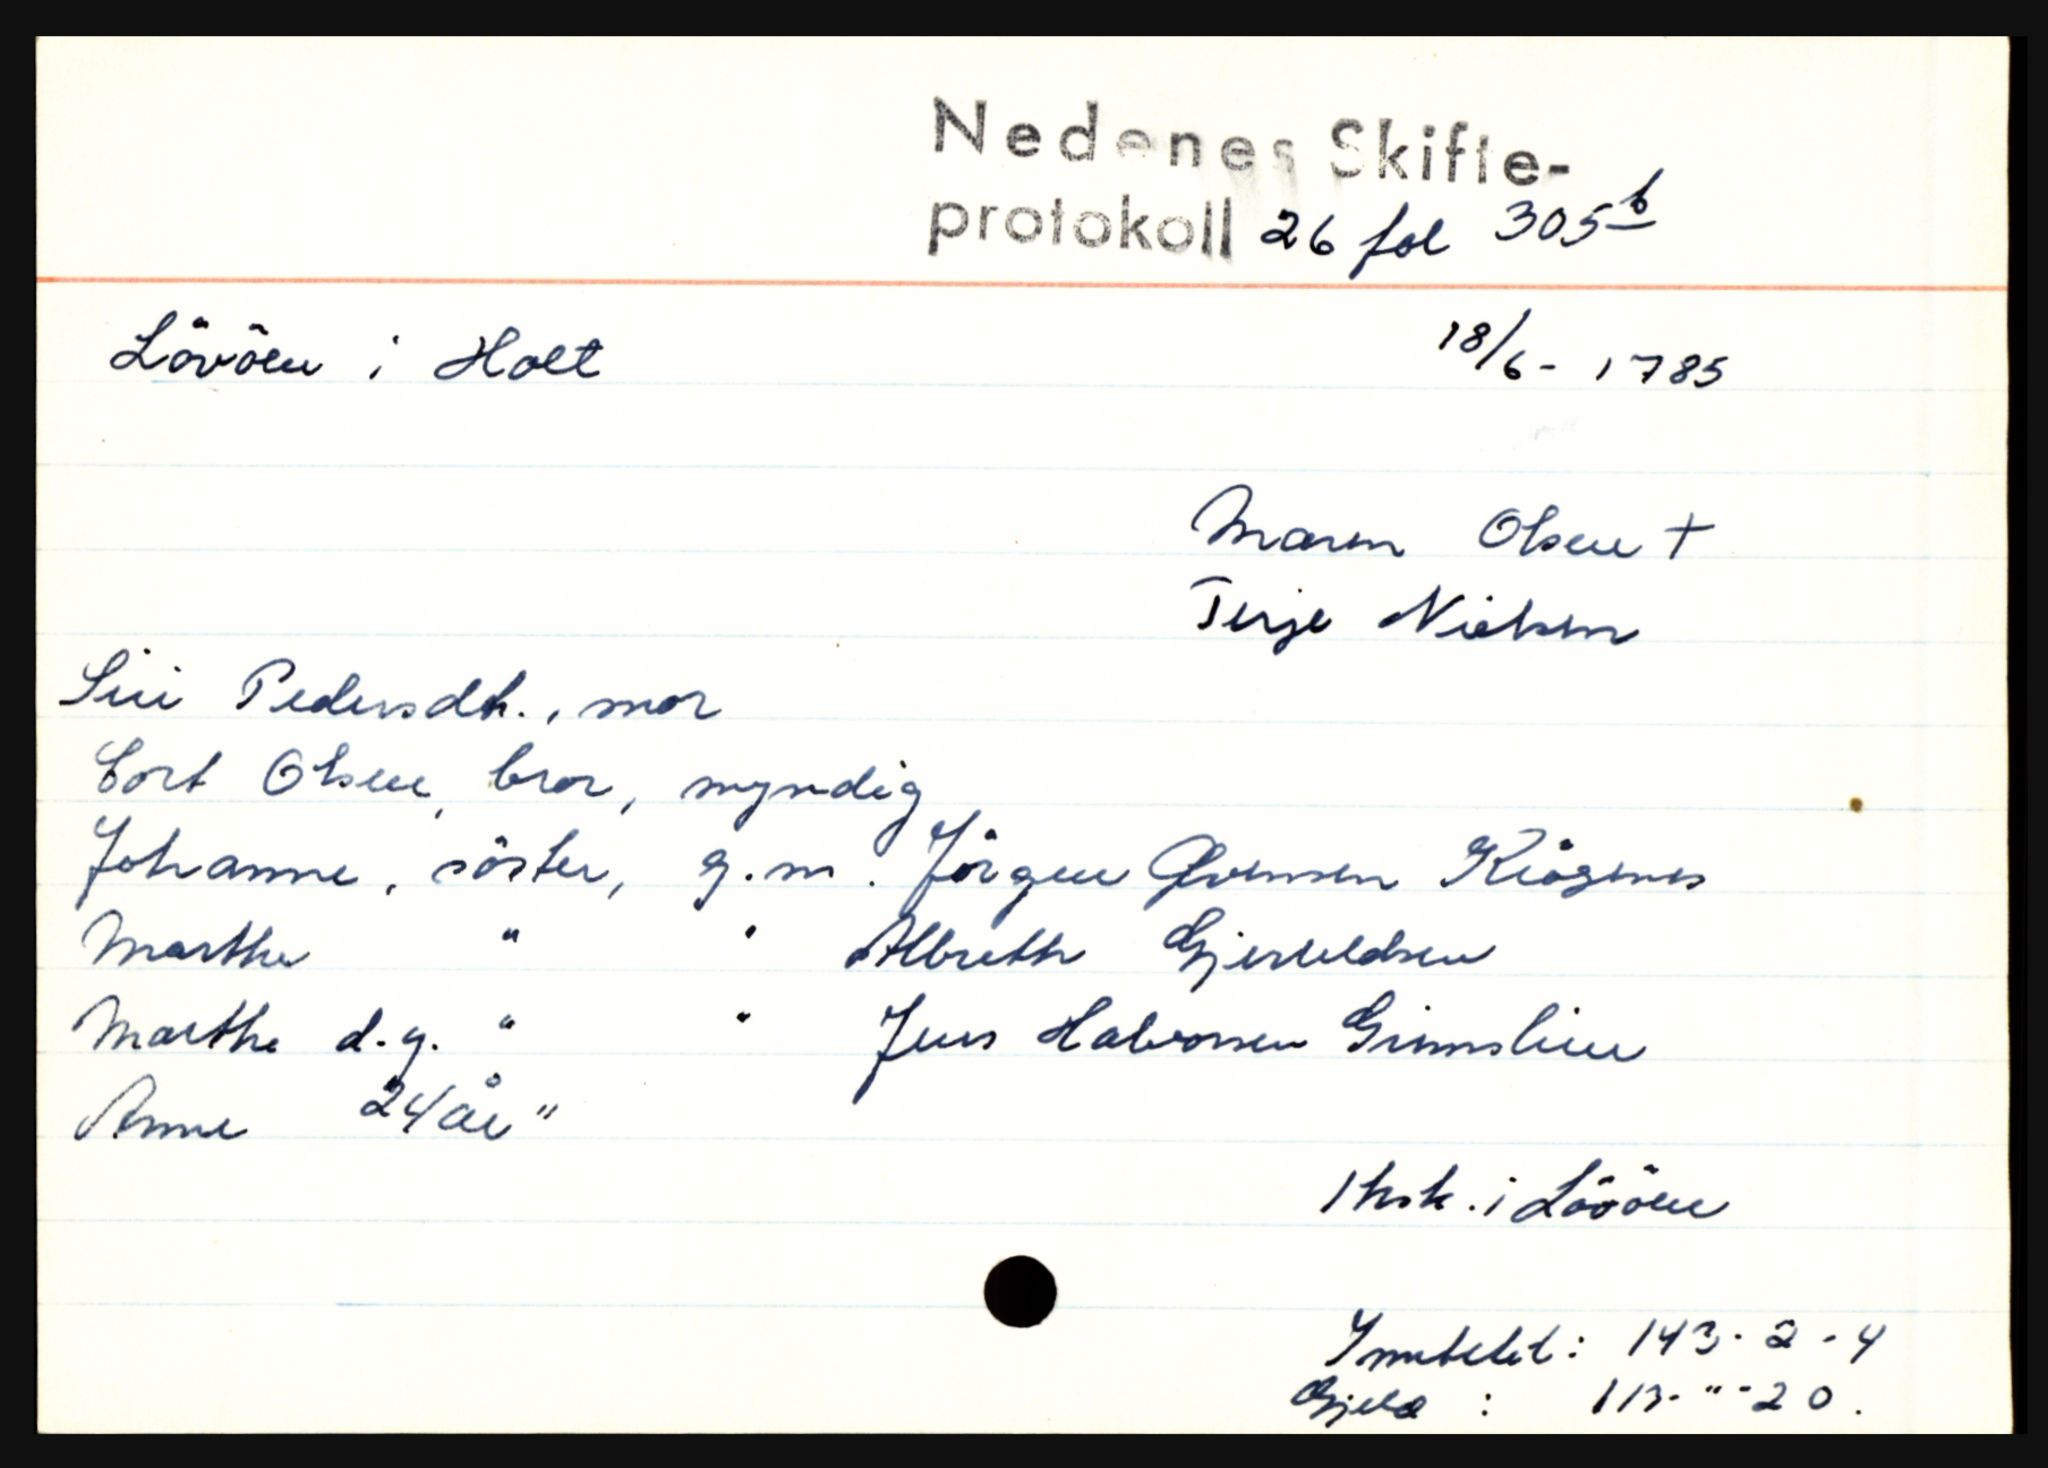 Nedenes Skifte-
protokoll 26 fol 305 b
Lövöen i Holt 18/6 - 1785
Maren Olsen +
Terje Nielsen
Siri Pedersdtr., mor
Cort Olsen, bror, myndig
Johanne, söster, g.m. Jörgen Evensen Kiögenes
Marthe " " Albreth Gjeruldsen
Marthe d.y. " " Jens Halvorsen Grimslien
Anne 24 år "
1 hsk. i Lövöen
Innteket: 143 - 2 - 4
Gjeld : 113 - " - 20.